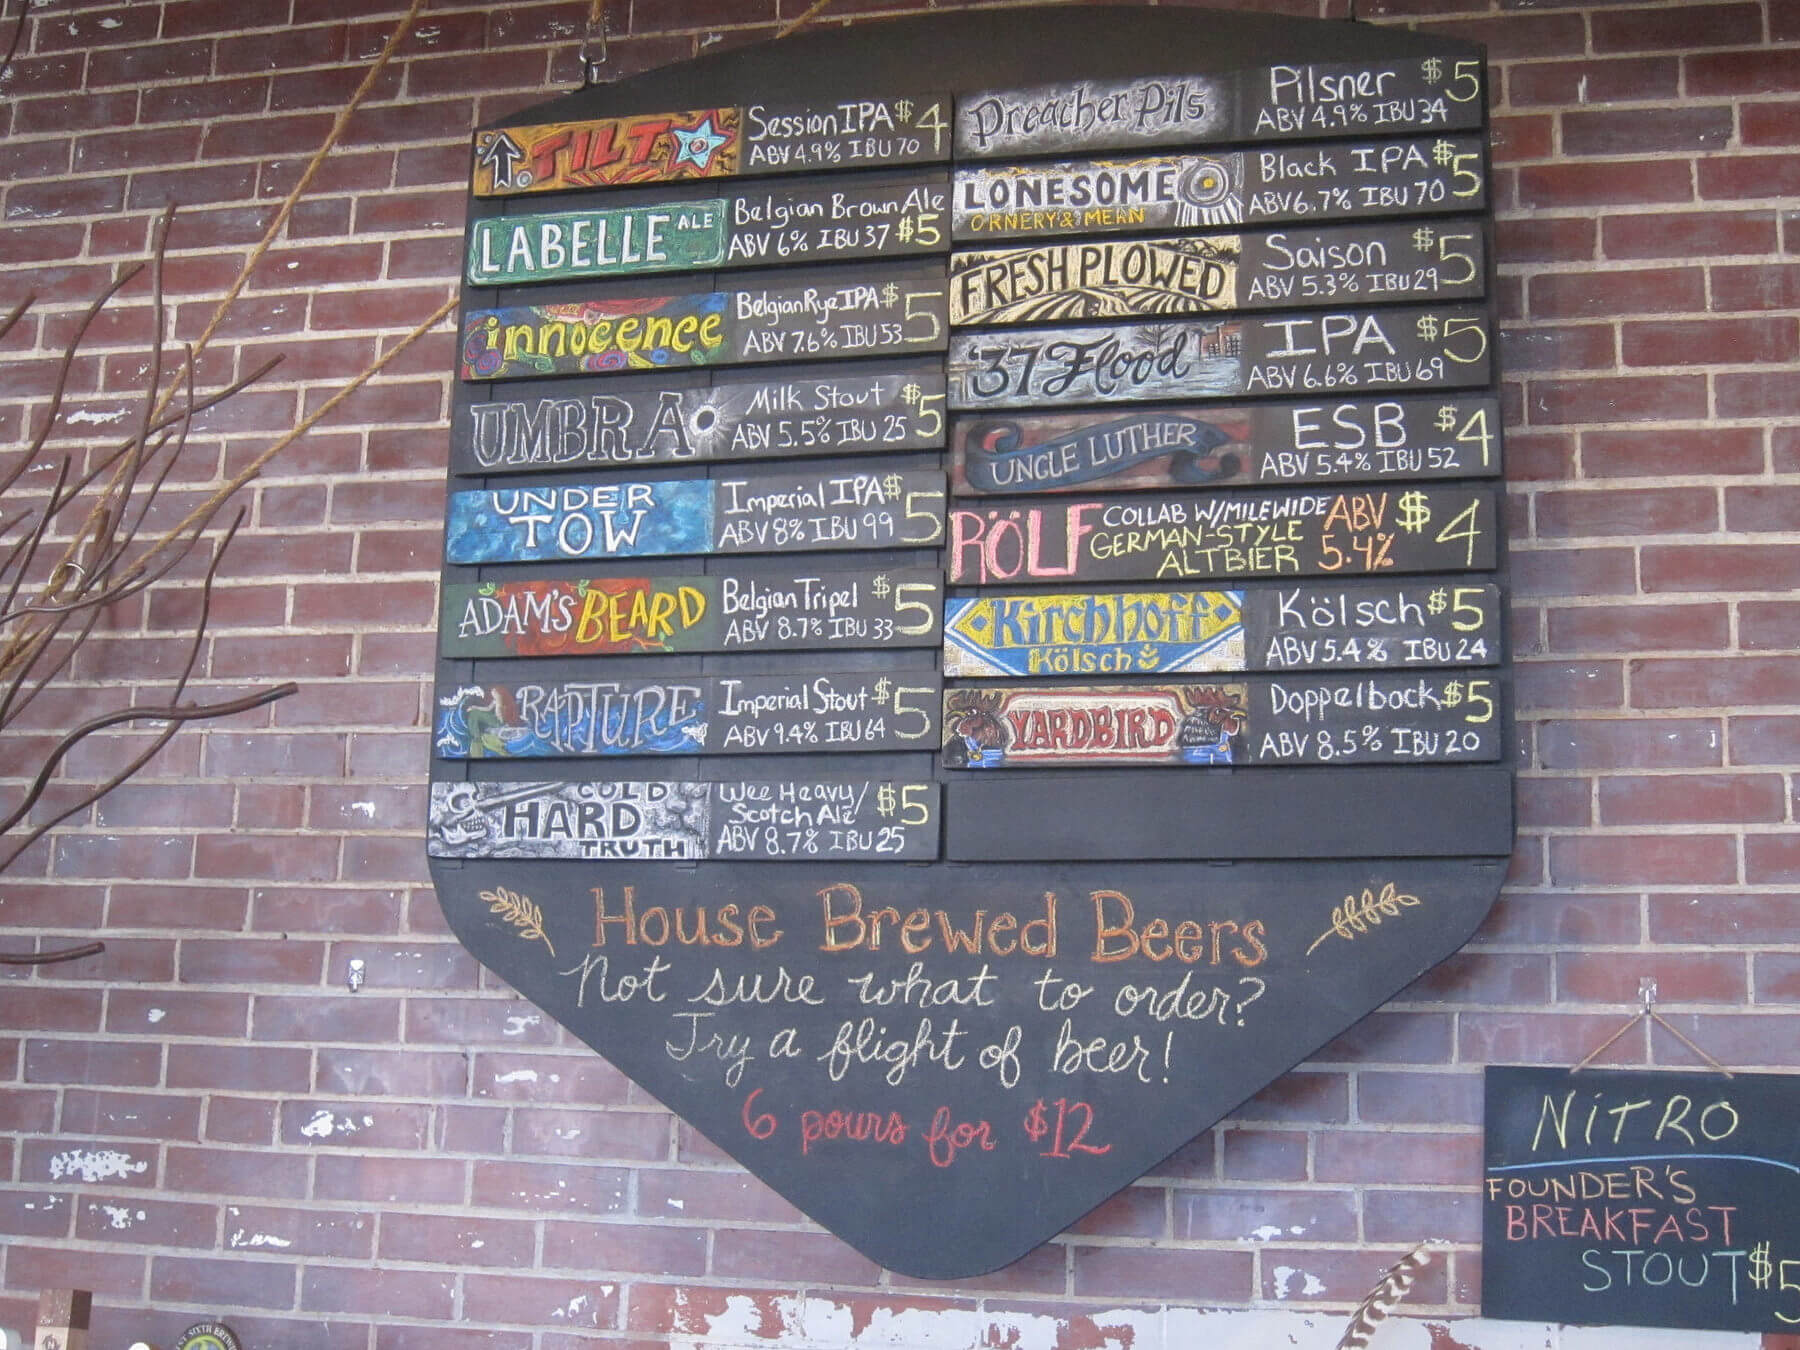 TILT
Session IPA $4
ABV 4.9% IBU 70
LABELLE ALE
Belgian Brown Ale
ABV 6% IBU 37 $5
innocence
Belgian Rye IPA $5
ABV 7.6% IBU 53
UMBRA
Milk Stout $5
ABV 5.5% IBU 25
UNDER
TOW
Imperial IPA $5
ABV 8% IBU 99
ADAM'S BEARD
Belgian Tripel $5
ABV 8.7% IBU 33
RAPTURE
Imperial Stout $5
ABV 9.4% IBU 64
COLD
HARD
TRUTH
Wee Heavy/ $5
Scotch Ale
ABV 8.7% IBU 25
Preacher Pils
Pilsner $5
ABV 4.9% IBU 34
LONESOME
ORNERY & MEAN
Black IPA $5
ABV 6.7% IBU 70
FRESH PLOWED
Saison $5
ABV 5.3% IBU 29
'37 Flood
IPA $5
ABV 6.6% IBU 69
UNCLE LUTHER
ESB $4
ABV 5.4% IBU 52
RÖLF
COLLAB W/MILEWIDE
GERMAN-STYLE
ALTBIER
ABV $4
5.4%
Kirchhoff
Kölsch
Kölsch $5
ABV 5.4% IBU 24
YARDBIRD
Doppelbock $5
ABV 8.5% IBU 20
House Brewed Beers
Not sure what to order?
Try a flight of beer!
6 pours for $12
NITRO
FOUNDER'S
BREAKFAST
STOUT $5
SIXTH BREW